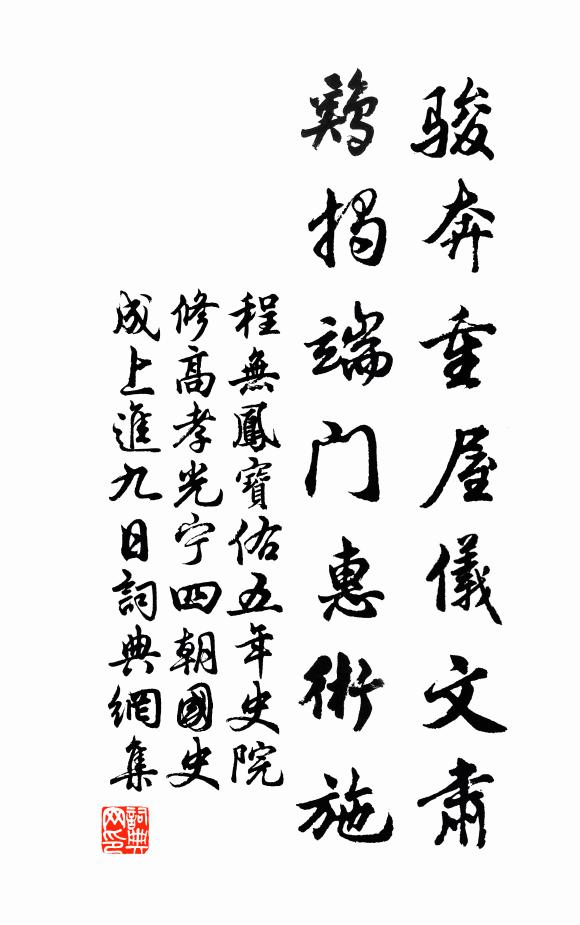 骏奔重屋儀文肅
鷄揭端門惠術施
程無鳳寶佑五年史院
修高孝光宁四朝國史
成上進九日詞典網集
詞典
网印